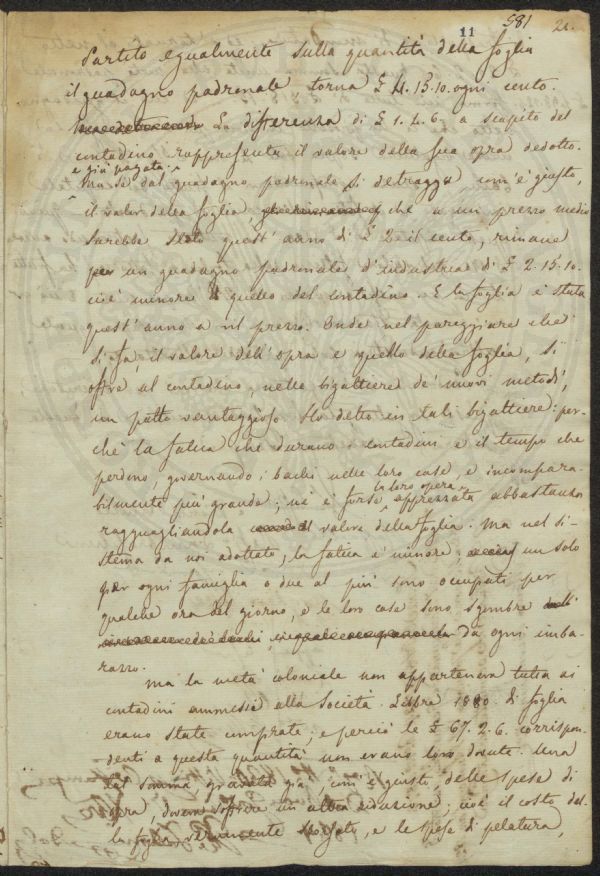 11 581 21.
Partito egualmente sulla quantità della foglia
il guadagno padronale, torna £ 4.15.10. ogni cento.
La differenza di £ 1.4.6. a scapito del
contadino rappresenta il valore della sua opra dedotto.
e già pagata.
Ma se dal guadagno padronale si detragga com'è giusto,
il valor della foglia, che a un prezzo medio
sarebbe stato quest'anno di £ 2. il cento, rimane
per un guadagno padronale d'industria di £ 2.15.10.
cioè minore di quello del contadino. E la foglia è stata
quest'anno a vil prezzo. Onde nel pareggiare che
si fa, il valore dell'opra e quello della foglia, si
offre al contadino, nelle bigattiere de' nuovi metodi,
un patto vantaggioso. Ho detto in tali bigattiere: per-
chè la fatica che durano i contadini e il tempo che
perdono, governando i bachi nelle loro case, è incompara-
bilmente più grande; nè è forse la loro opera apprezzata abbastanza
ragguagliandola al valore della foglia. Ma nel si-
stema da noi adottato, la fatica è minore; un solo
per ogni famiglia o due al più sono occupati per
qualche ora del giorno, e le loro case sono sgombre
da ogni imba-
razzo.
Ma la metà coloniale non apparteneva tutta ai
contadini ammessi alla Società. Libbre 1880 di foglia
erano state comprate; e perciò le £ 67.2.6. corrispon-
denti a questa quantità non erano loro dovute. Una
tal somma, gravata già, com'è giusto, delle spese di
opera, dovea soffrire un'altra riduzione; cioè il costo del-
la foglia, veramente sborsato, e le spese di pelatura,